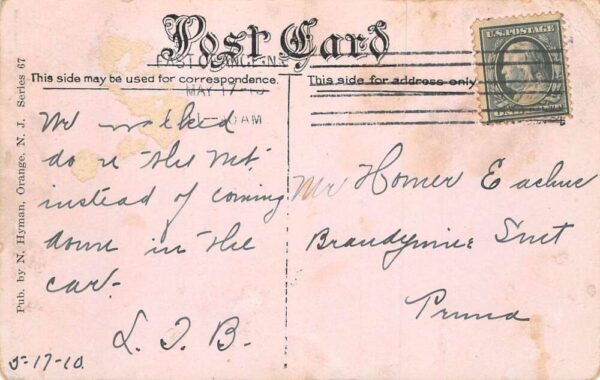 Post Card
EAST ORANGE N.J.
This side may be used for correspondence.
This side for address only
MAY 17-10
AM
U.S. POSTAGE
We walked
down the Mt.
instead of coming
down in the
car-
L. J. B.
5-17-10.
Mr Homer
Brandywine
Pub. by N. Hyman, Orange, N. J. Series 67